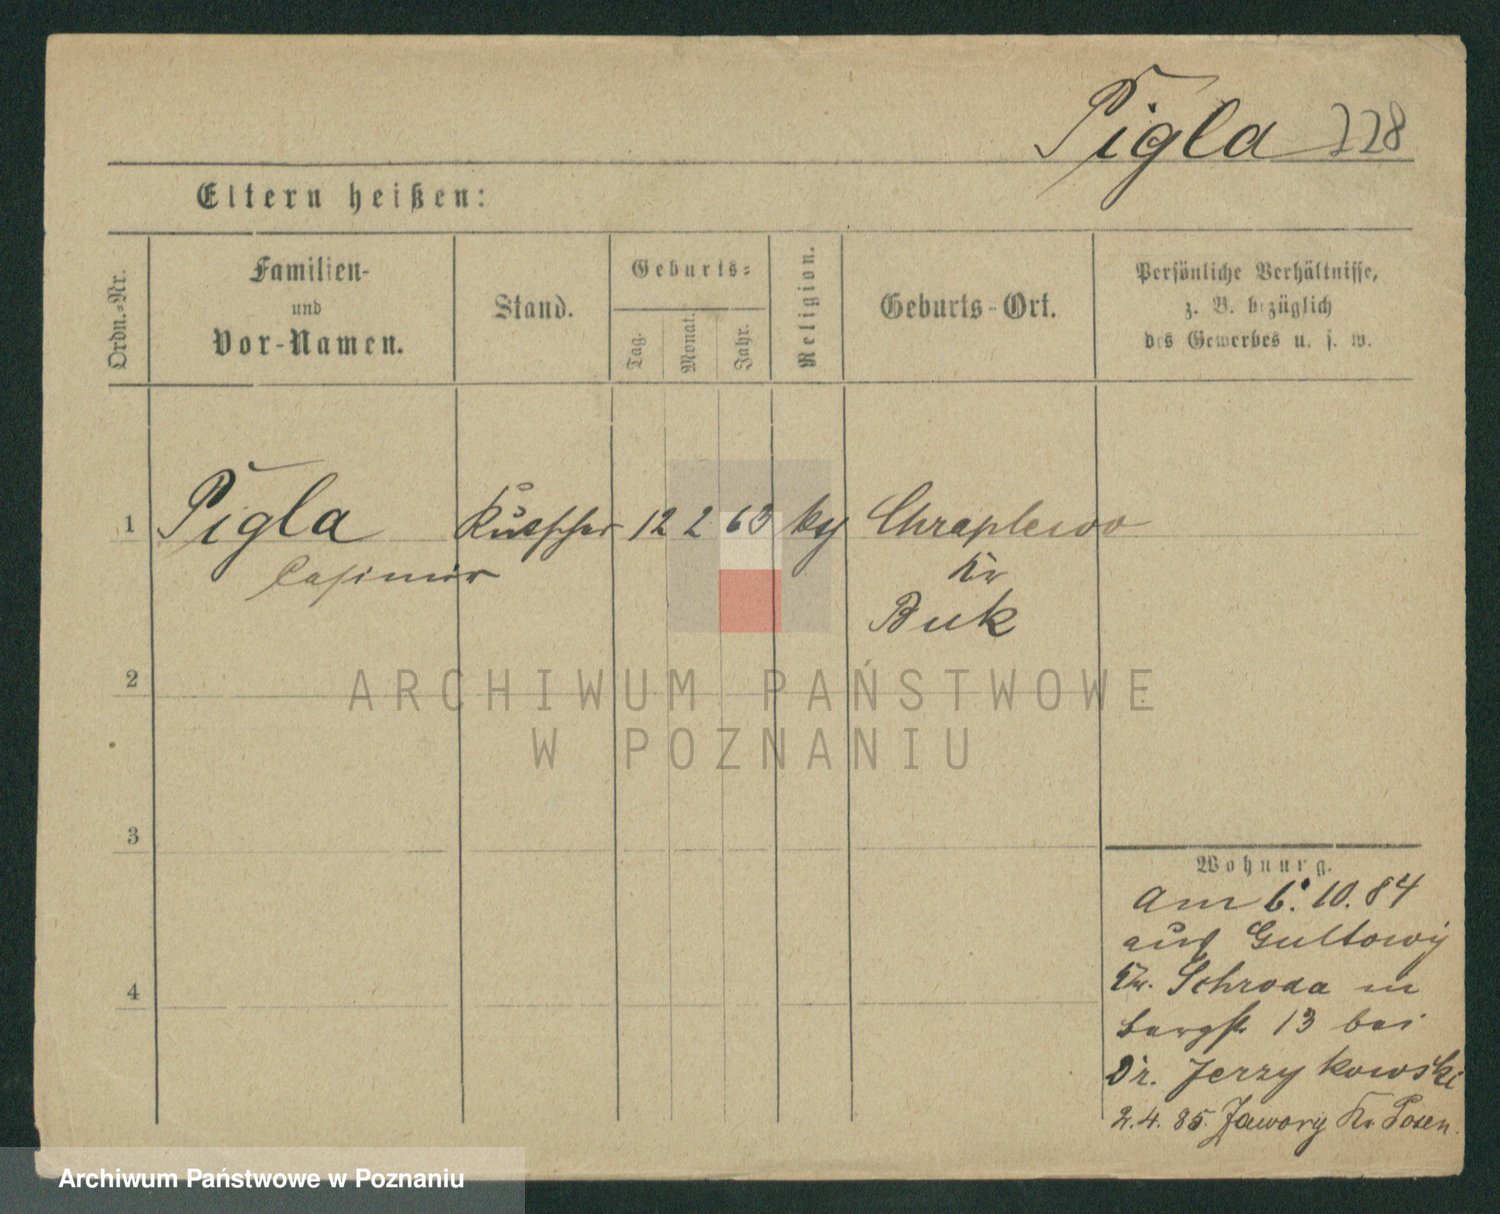 Pigla 228
Eltern heißen:
Ordn.-Nr.
Familien-
und
Vor-Namen.
Stand.
Geburts-
Tag.
Monat.
Jahr.
Religion.
Geburts-Ort.
Persönliche Verhältnisse,
z. B. bezüglich
des Gewerbes u. s. w.
1 Pigla Kutscher 12 2 63 Chraplewo
Casimir Kr
Buk
2
ARCHIWUM PAŃSTWOWE
W POZNANIU
3
Wohnung.
Am 6. 10. 84
aus Gultowy
Kr. Schroda in
Bergstr 13 bei
Dr. Jerzykowski
2. 4. 85. Jawory Kr. Posen.
4
Archiwum Państwowe w Poznaniu